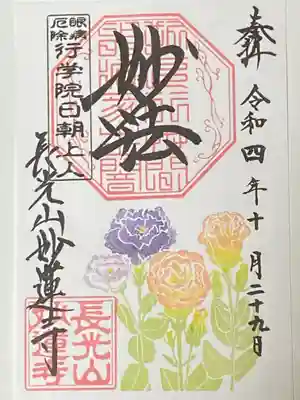 奉拝 令和四年十月二十九日
妙法
眼病
厄除
行学院日朝上人
長光山妙蓮寺
長光山
妙蓮寺